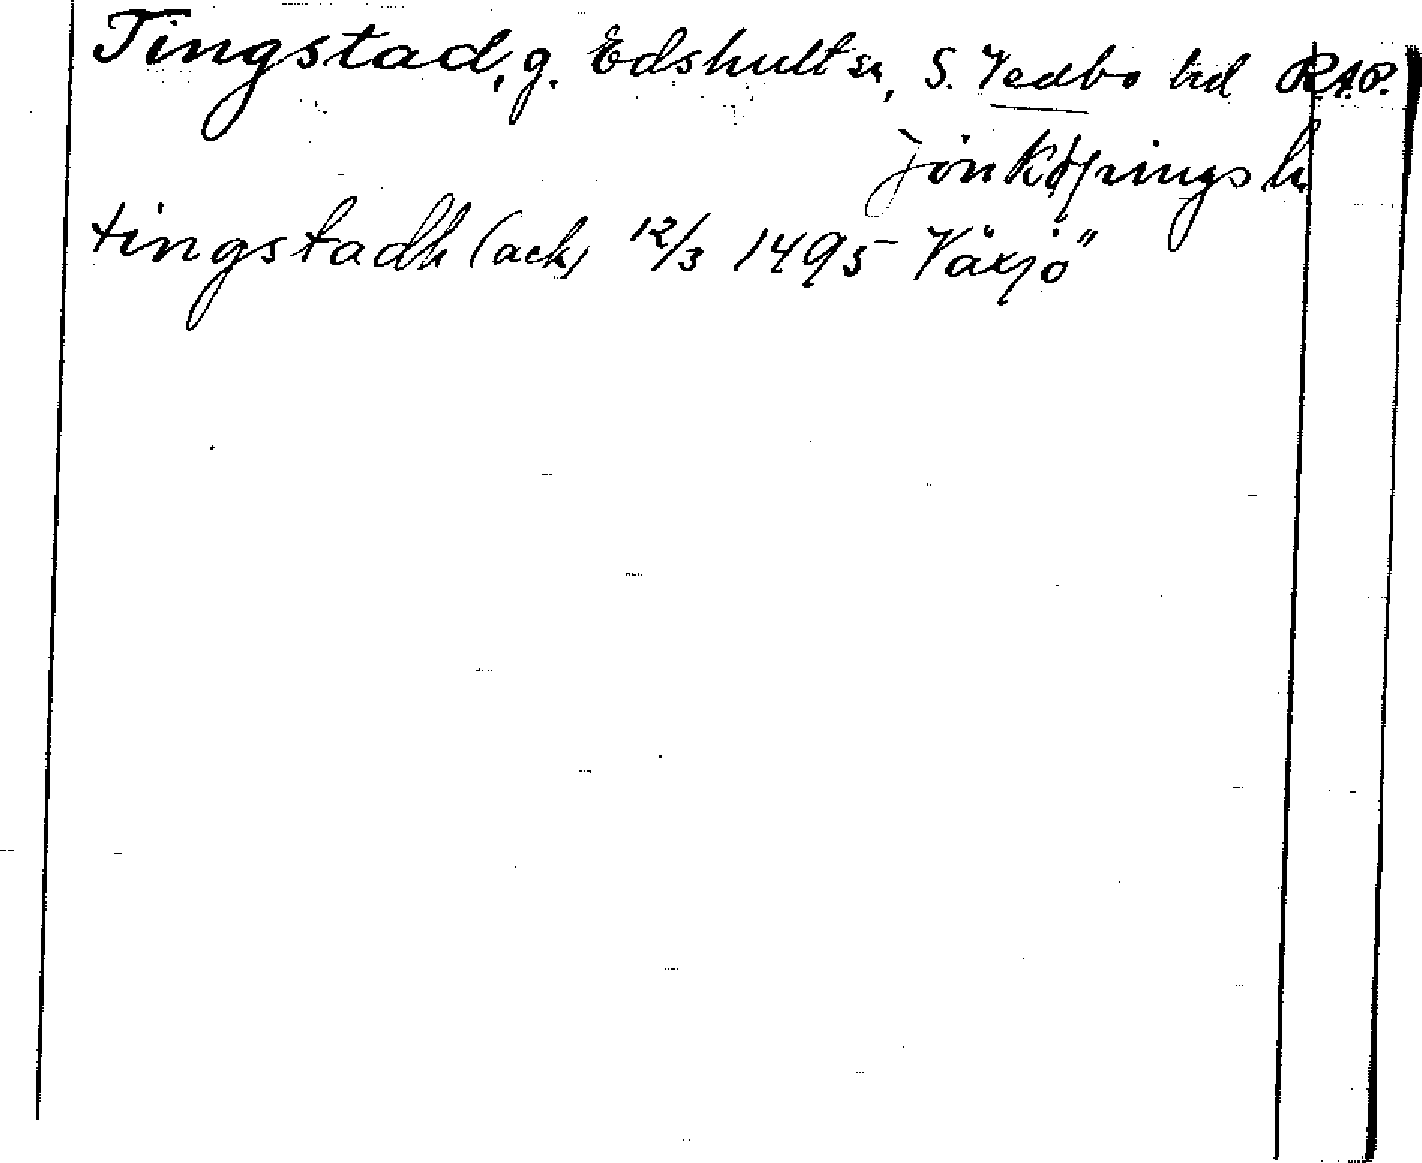 Tingstad, g. Edshult sn, S. Vedbo hd R.A.P.
Jönköpings l
tingstadh (ack) 12/3 1495 Växjö